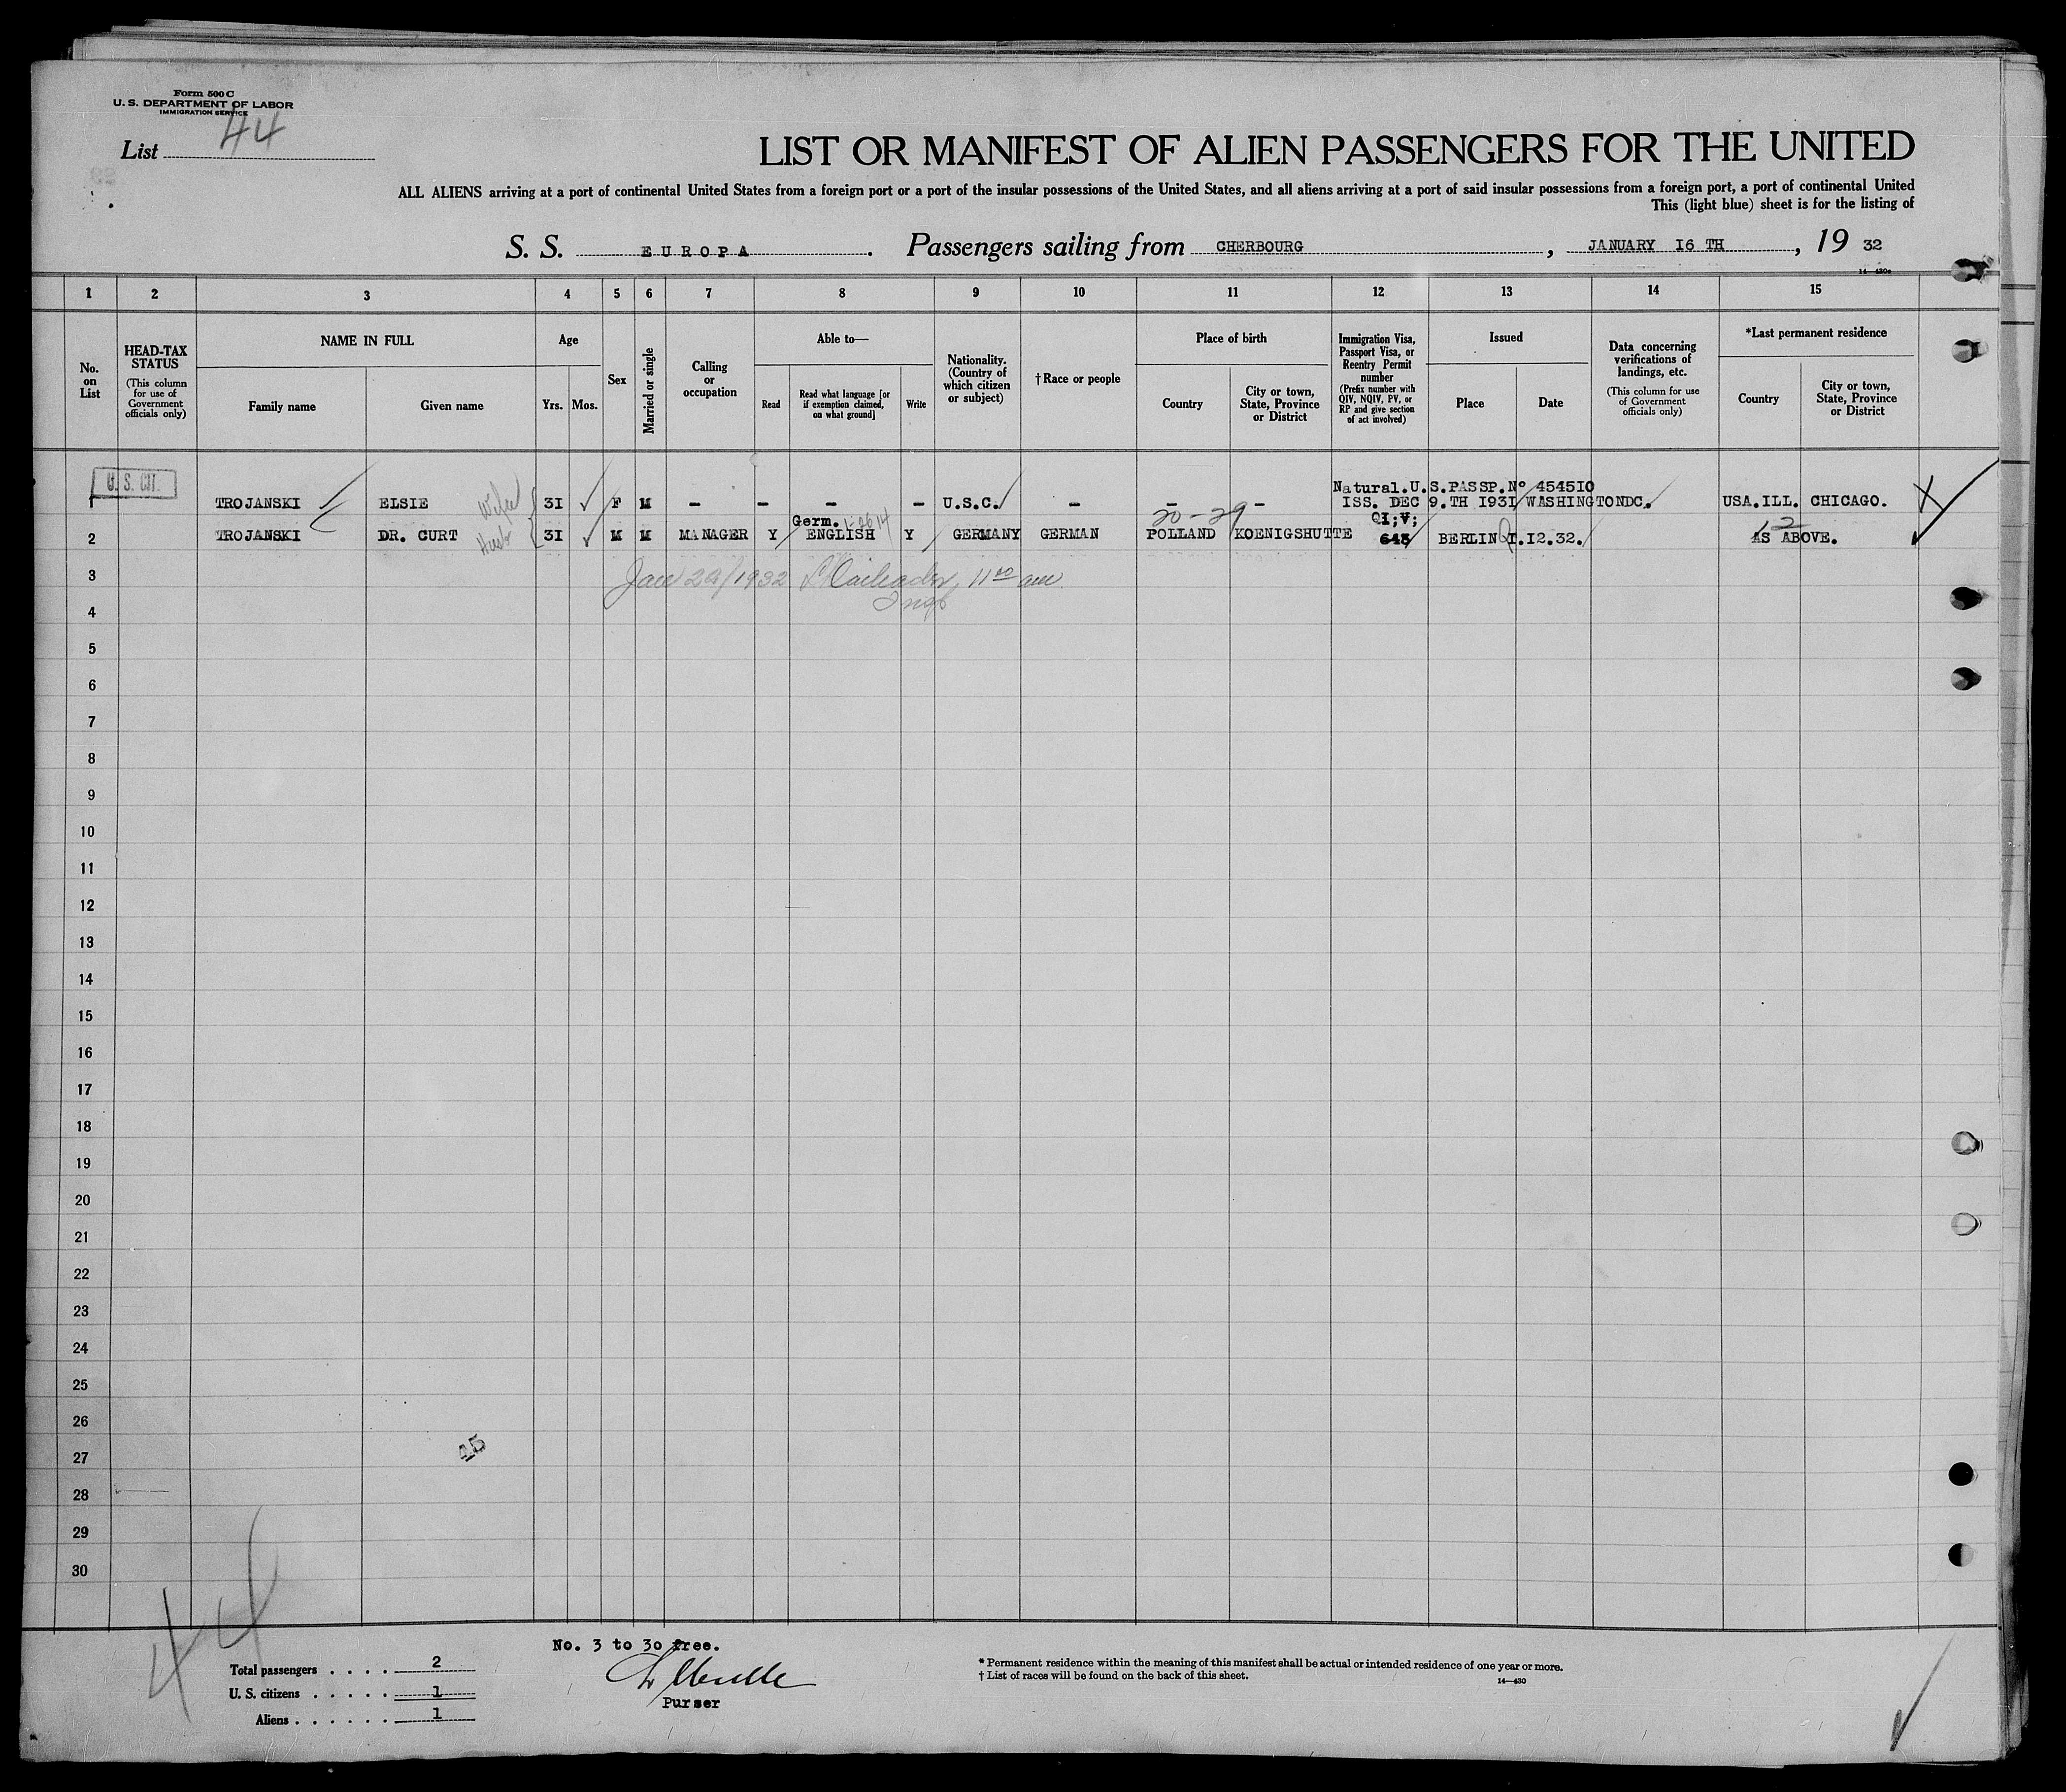 Form 500 C
U. S. DEPARTMENT OF LABOR
IMMIGRATION SERVICE
List 44
LIST OR MANIFEST OF ALIEN PASSENGERS FOR THE UNITED
ALL ALIENS arriving at a port of continental United States from a foreign port or a port of the insular possessions of the United States, and all aliens arriving at a port of said insular possessions from a foreign port, a port of continental United
This (light blue) sheet is for the listing of
S. S. EUROPA. Passengers sailing from CHERBOURG, JANUARY I6 TH, 19 32
14—430a
1 2 3 4 5 6 7 8 9 10 11 12 13 14 15
No. on List
HEAD-TAX STATUS (This column for use of Government officials only)
NAME IN FULL
Family name
Given name
Age
Yrs. Mos.
Sex
Married or single
Calling or occupation
Able to—
Read
Read what language [or if exemption claimed, on what ground]
Write
Nationality. (Country of which citizen or subject)
† Race or people
Place of birth
Country
City or town, State, Province or District
Immigration Visa, Passport Visa, or Reentry Permit number (Prefix number with QIV, NQIV, PV, or RP and give section of act involved)
Issued
Place
Date
Data concerning verifications of landings, etc. (This column for use of Government officials only)
*Last permanent residence
Country
City or town, State, Province or District
U. S. CIT.
Natural.U.S.PASSP.Nº 454510
1 TROJANSKI ELSIE Wife 3I F M - - - - U.S.C. - - - ISS. DEC 9.TH I93I WASHINGTONDC. USA.ILL. CHICAGO.
Germ. 20-29 QI;V;
2 TROJANSKI DR. CURT Husb 3I M M MANAGER Y ENGLISH Y GERMANY GERMAN POLLAND KOENIGSHUTTE 645 BERLIN I.I2.32. AS ABOVE.
3
Jan 22/1932 11⁰⁰ am
4
Insp
5
6
7
8
9
10
11
12
13
14
15
16
17
18
19
20
21
22
23
24
25
26
27
28
29
30
45
44
No. 3 to 30 free.
Purser
Total passengers . . . . 2
U. S. citizens . . . . . 1
Aliens . . . . . . 1
* Permanent residence within the meaning of this manifest shall be actual or intended residence of one year or more.
† List of races will be found on the back of this sheet.
14—430